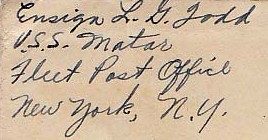 Ensign L. G. Todd
U.S.S. Matar
Fleet Post Office
New York, N.Y.